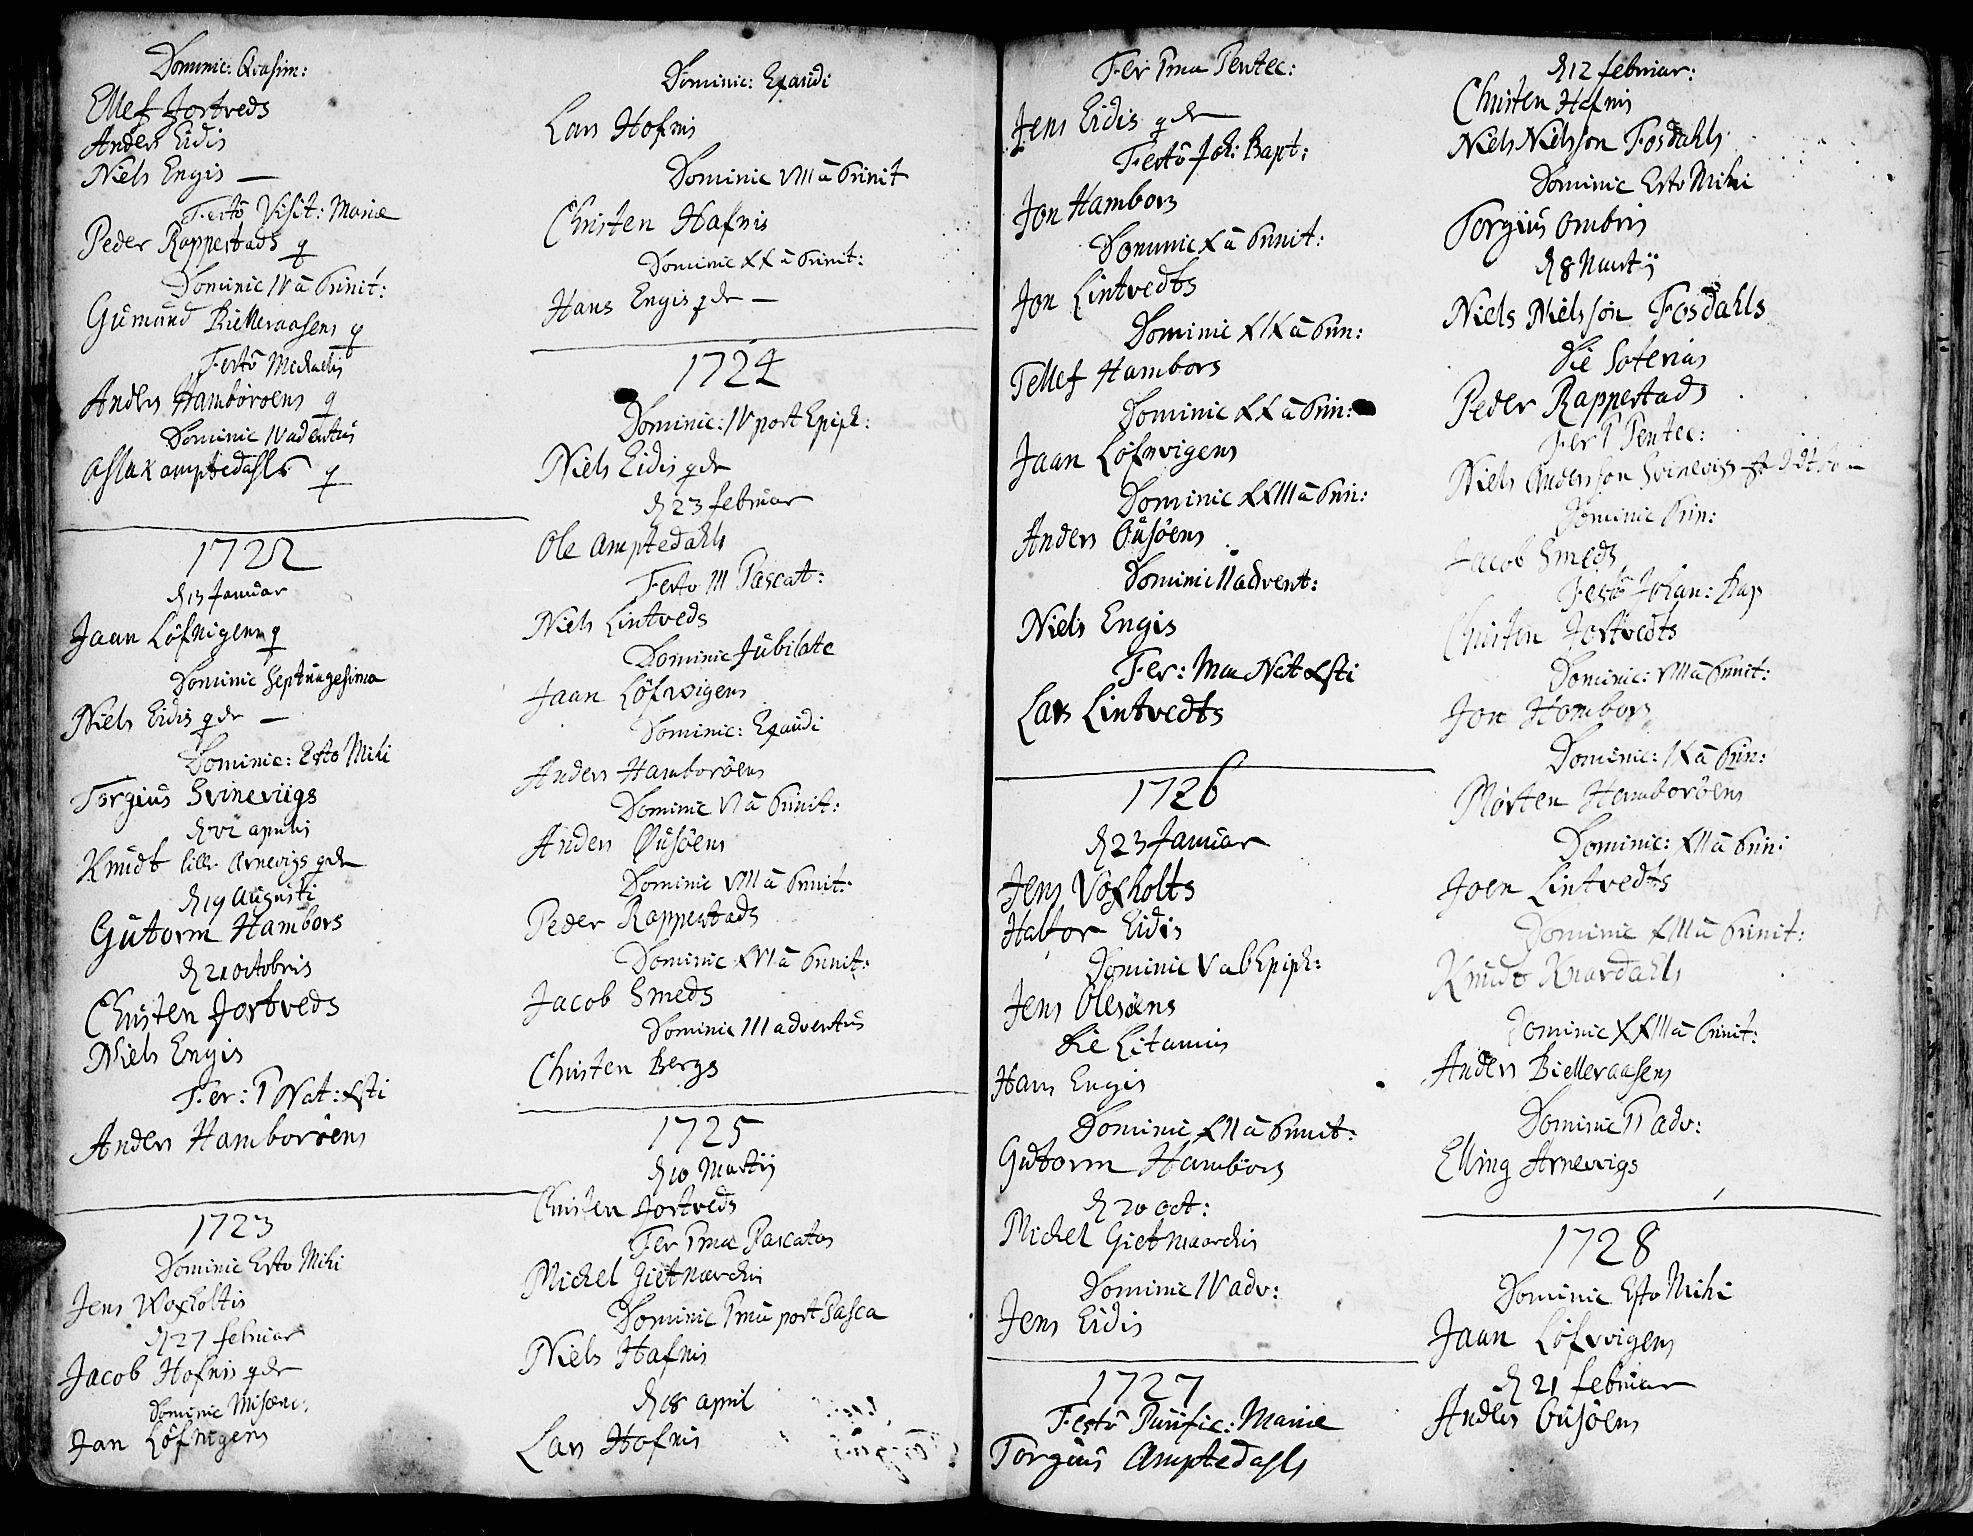 Dominic: Qvasim:
Ellef Jortveds
Anders Eidis
Niels Engis —
Festo Visit: Mariæ
Peder Rappestads q
Dominic IV à Trinit:
Gumund Bielleraasens q
Festo Michaelis
Anders Hamborøens q
Dominic IV adventus
Aslak Amptedahls q
1722
d 13 Januar
Jaan Löfvigens q
Dominic Septuagesima
Niels Eidis qde —
Dominic: Esto Mihi
Torgius Svineviigs
d 22 aprilis
Knudt lille Arnevigs qde
d 19 Augusti
Gutorm Hambors
d 21 octobris
Christen Jortveds
Niels Engis
Fer: I Nat: Xsti
Anders Hamborøens
1723
Dominic Esto Mihi
Jens Voxholtis
d 27 februar
Jacob Hofnis qde
Dominic Miseric:
Jan Löfvigens
Dominic: Exaudi
Lars Hofnis
Dominic VIII à Trinit
Christen Hafnis
Dominic XX à Trinit:
Hans Engis qde —
1724
Dominic: IV post Epiph:
Niels Eidis qde
d 23 februar
Ole Amptedahls
Festo III Pascat:
Niels Lintveds
Dominic Jubilate
Jaan Löfvvigens
Dominic: Exaudi
Anders Hamborøens
Dominic VI à Trinit:
Anders Øusøens
Dominic VIII à Trinit:
Peder Rappestads
Dominic XVI à Trinit:
Jacob Smeds
Dominic III adventus
Christen Bergs
1725
d 10 Martij
Christen Jortveds
Fer Imæ Pascatos
Michel Gietmarchis
Dominic Imu post Pasca
Niels Hafnis
d 18 april
Lars Hofnis
Fer Imu Pentec:
Jens Eidis qde
Festo Joh: Bapt:
Jon Hambors
Dominic X à Trinit:
Jon Lintvedts
Dominic XIX à Trin:
Tellef Hambors
Dominic XX à Trin:
Jaan Löfvvigens
Dominic XXIII à Trin:
Anders Øusøens
Dominic II advent:
Niels Engis
Fer: IIdu Nat Xsti
Lars Lintvedts
1726
d 23 Januar
Jens Voxholts
Halvor Eidis
Dominic V ab Epiph:
Jens Olesøns
die Litaniis
Hans Engis
Dominic XII à Trinit:
Gutorm Hambors
d 20 oct:
Michel Gietmaarchis
Dominic IV adv:
Jens Eidis
1727
Festo Purific: Mariæ
Torgius Amptedahls
d 12 februar:
Christen Hafnis
Niels Nielsson Fosdahls
Dominic Esto Mihi
Torgius Ombris
d 8 Martij
Niels Nielsson Fosdahls
die Soterias
Peder Rappestads
Fer I Pentec:
Niels Andersson Svinevigs
Dominic Trin:
Jacob Smeds
Festo Johan: Bap
Christen Jortvedts
Dominic: VIII à Trinit:
Jon Hombors
Dominic: IX à Trin:
Morten Hamborøens
Dominic: XII à Trin:
Joen Lintvedts
Dominic XIII à Trinit:
Knudt Knardahls
Dominic XXIII à Trinit:
Anders Bielleraasens
Dominic I adv:
Elling Arnevvigs
1728
Dominic Esto Mihi
Jaan Löfvvigens
d 21 februar
Anders Øusøens